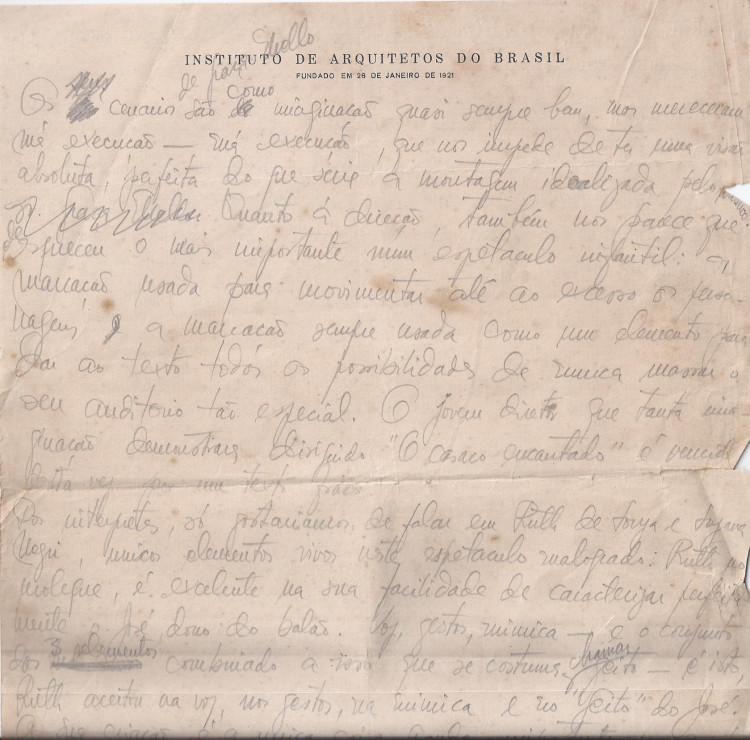 INSTITUTO DE ARQUITETOS DO BRASIL
FUNDADO EM 26 DE JANEIRO DE 1921
de Mello
como
Os cenarios são imaginação quasi sempre boa, mas mereceram
má execução — má execução, que nos impede de ter uma visão
absoluta, perfeita do que seria a montagem idealizada pelo
Quanto á direcção, também nos parece que
esqueceu o mais importante num espetaculo infantil: a
marcação usada para movimentar até ao excesso os perso-
nagens, a marcação sempre usada como um elemento para
dar ao texto todas as possibilidades de nunca massar o
seu auditorio tão especial. O jovem diretor que tanta ima-
ginação demonstrara dirigindo "O casaco encantado" é vencido
desta vez por um texto
Dos interpretes, só gostariamos de falar em Ruth de Souza e Suzana
Negri, unicos elementos vivos neste espetaculo malogrado: Ruth no
moleque, é excelente na sua facilidade de caracterizar perfeita-
mente o José, dono do balão. Voz, gestos, mimica — e o conjunto
dos 3 elementos combinado a isso que se costuma chamar jeito — é isto,
Ruth acertou na voz, nos gestos, na mimica e no "jeito" do José.
A sua criação é a unica